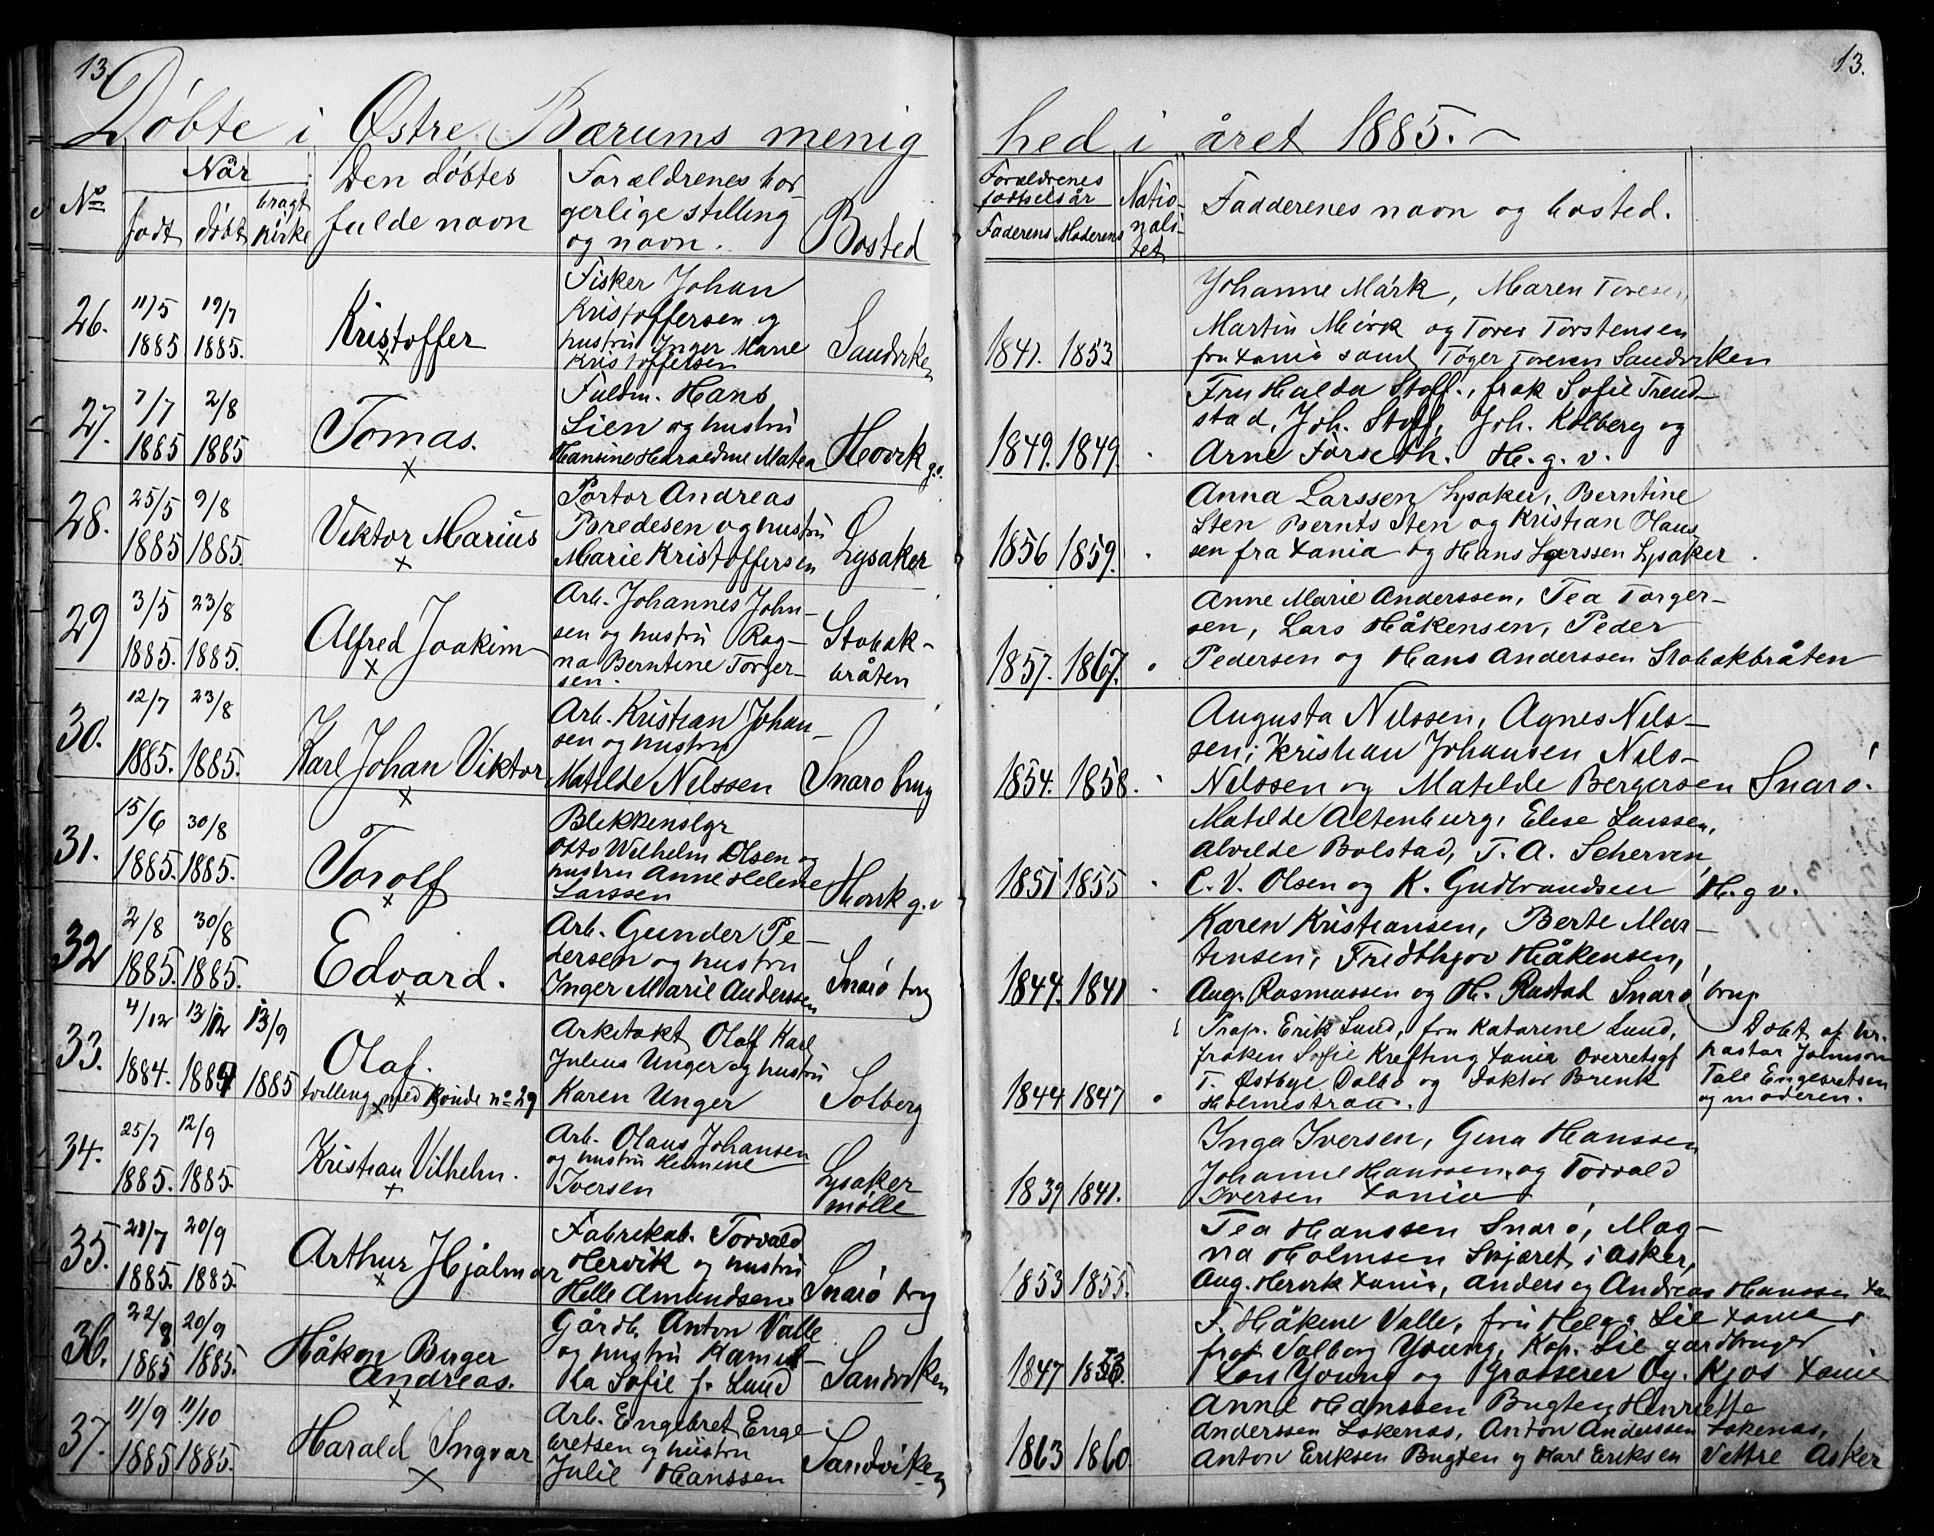 13.
13.
Døbte i Østre Bærums menig
hed i året 1885.
No
Når
født
døbt
bragt kirke
Den døbtes
fulde navn
Forældrenes bor
gerlige stilling
og navn.
Bosted
Forældrenes
fødselsår
Faderens
Moderens
Natio-
nali-
tet
Faddernes navn og bosted.
26.
11/5
1885
19/7
1885.
Kristoffer
Fisker Johan
Kristoffersen og
hustru Inger Marie
Kristoffersen
Sandviken
1841. 1853
Johanne Mørk, Maren Toresen,
Martin Mørk og Torer Torstensen
fra Xania samt Toger Toresen Sandviken
27.
7/7
1885
2/8
1885
Tomas.
Fuldm. Hans
Lien og hustru
Hansine Haraldine Matea
Hovik g.v.
1849. 1849.
Fru Halda Stoff., frøk Sofie Trend-
stad, Joh. Stoff, Joh. Kolberg og
Arne Forseth. H. g. v.
28.
25/5
1885
9/8
1885.
Viktor Marius
Portør Andreas
Bredesen og hustru
Marie Kristoffersen
Lysaker
1856 1859.
Anna Larssen Lysaker, Berntine
Sten Bernts Sten og Kristian Olaus
sen fra Xania og Hans Larssen Lysaker
29
3/5
1885.
23/8
1885.
Alfred Joakim
Arb. Johannes John-
sen og hustru Rag-
na Berntine Torger-
sen.
Stobak-
bråten
1857. 1867.
Anne Marie Anderssen, Tea Torger-
sen, Lars Håkensen, Peder
Pedersen og Hans Anderssen Stobakbråten
30.
12/7
1885.
23/8
1885.
Karl Johan Viktor
Arb. Kristian Johan-
sen og hustru
Matilde Nilssen
Snarø brug
1854. 1858.
Augusta Nilssen, Agnes Nils-
sen, Kristian Johansen Nils-
Nilssen og Matilde Bergersen Snarø.
31.
15/6
1885.
30/8
1885.
Torolf
Blikkenslgr
Otto Wilhelm Olsen og
hustru Anne Helene
Larssen
Høvik g.v
1851 1855
Matilde Altenburg, Elise Larssen,
Alvilde Bolstad, T. A. Scherven,
C. V. Olsen og K. Gudbrandsen H. g v.
32
2/8
1885.
30/8
1885.
Edvard.
Arb. Gunder Pe-
dersen og hustru
Inger Marie Anderssen
Snarø brg
1844. 1841
Karen Kristiansen, Berte Mar-
tinsen, Fredthjov Håkensen,
Aug. Rasmussen og H. Rustad Snarø brug
33.
4/12
1884.
13/12
1884
13/9
1885
Olaf.
tvilling med Kvinde no 29
Arkitekt Olaf Karl
Julius Unger og hustru
Karen Unger
Solberg
1844 1847
Prop. Erik Lund, fru Katarine Lund,
frøken Sofie Krefting Xania Overretsgf
T. Østbye Dalbo og Doktor Brenk
Holmestrand.
Døbt af hr.
pastor Johnson
Tale Engebretsen
og moderen.
34.
25/7
1885.
12/9
1885.
Kristian Vilhelm.
Arb. Olaus Johansen
og hustru Hermine
Iversen
Lysaker
mølle
1839 1841.
Inga Iversen, Gina Hanssen
Johanne Hanssen og Torvald
Iversen Xania
35.
21/7
1885.
20/9
1885.
Arthur Hjalmar
Fabrikab. Torvald
Hervik og hustru
Helle Amundsen
Snarø brg
1853 1855.
Tea Hanssen Snarø, Mag-
na Holmsen Skjæret i Asker,
Aug. Hervik Xania, Anders og Andreas Hanssen Xan
36.
22/8
1885
20/9
1885.
Håkon Birger
Andreas.
Gårdb. Anton Valle
og hustru Kamil-
la Sofie f. Lund
Sandviken
1847
F. Håkine Valle, fru Helga Lie Xania
frøk Solborg Young, Kap. Lie gardbruger
Lars Young og Grosserer Og. Kjos Xania
37.
11/9
1885
11/10
1885.
Harald Ingvar
Arb. Engebret Enge
bretsen og hustru
Julie Hanssen
Sandviken
1863 1860
Anne Hanssen Bugten Henriette
Anderssen Løkenæs, Anton Anderssen Løkenæs,
Anton Eriksen Bugten og Karl Eriksen Vettre Asker